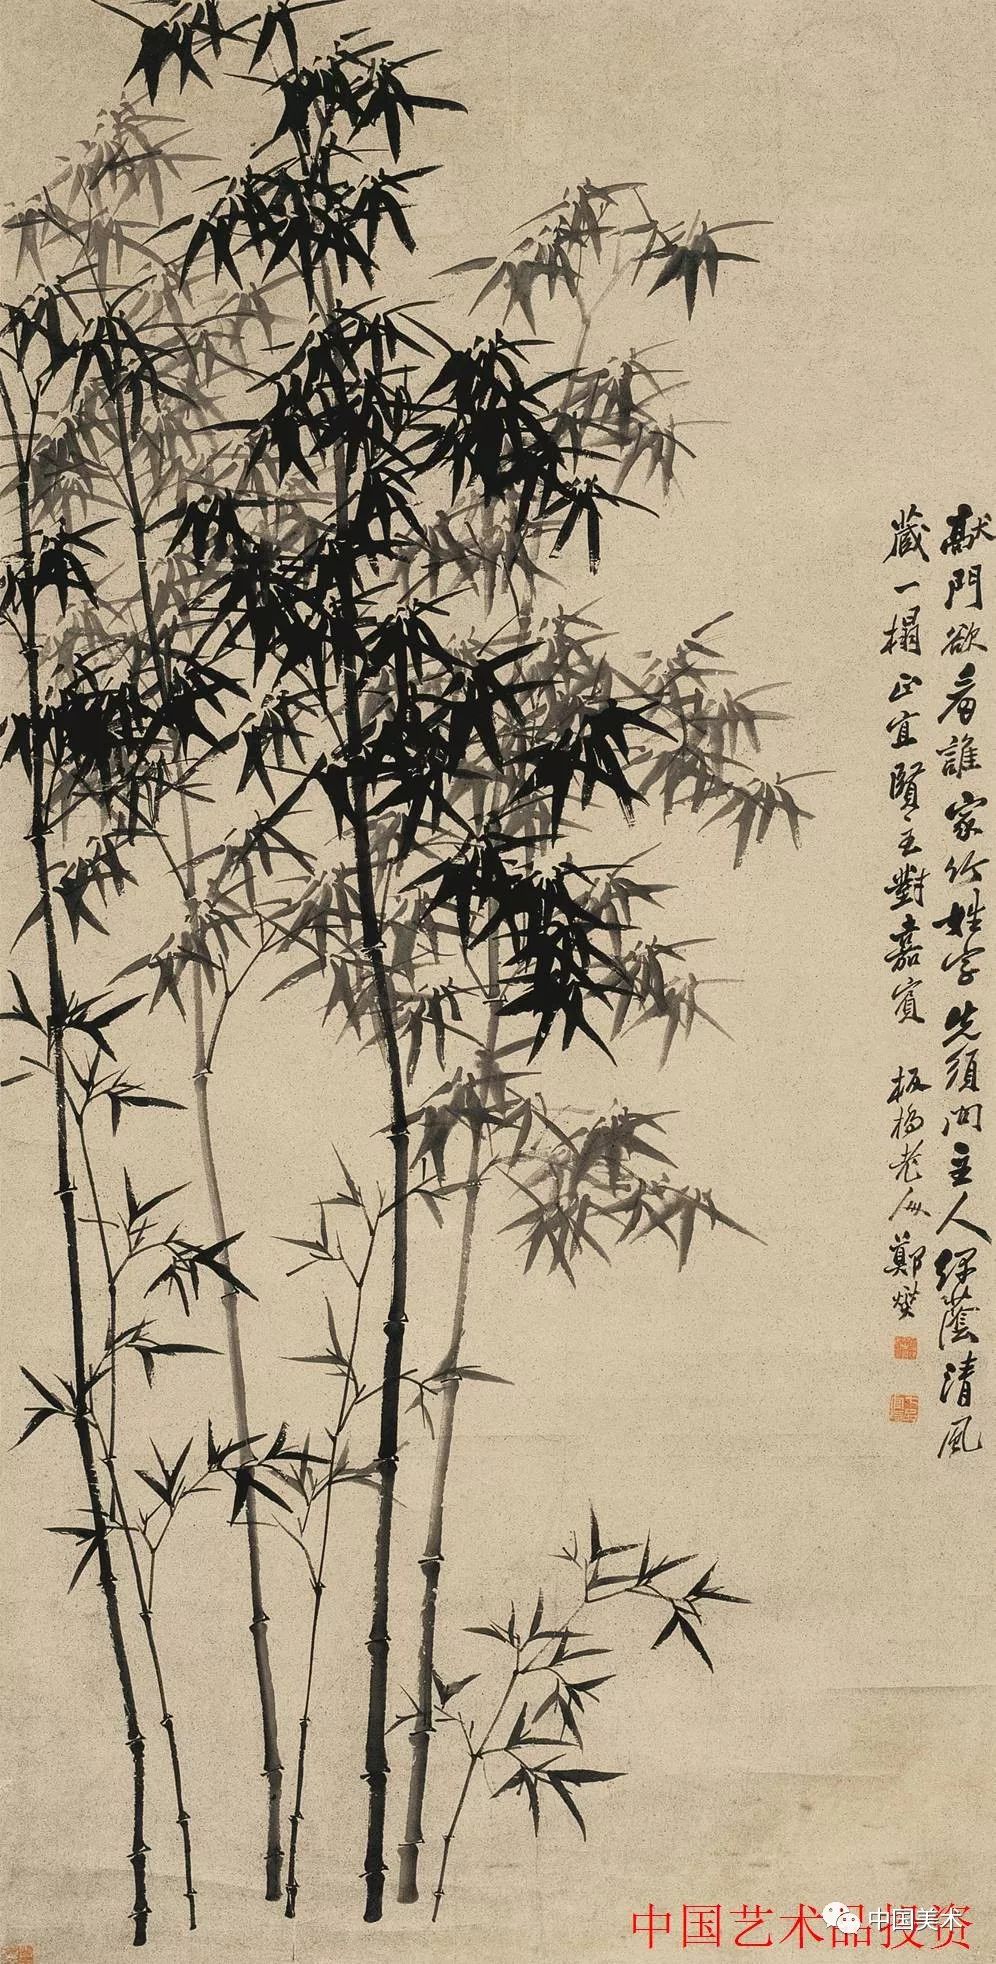 敲門欲看誰家竹姓字先須問主人綠蔭清風
藏一榻正宜賢主對嘉賓 板橋老人鄭燮
中国艺术品投资
中国美术